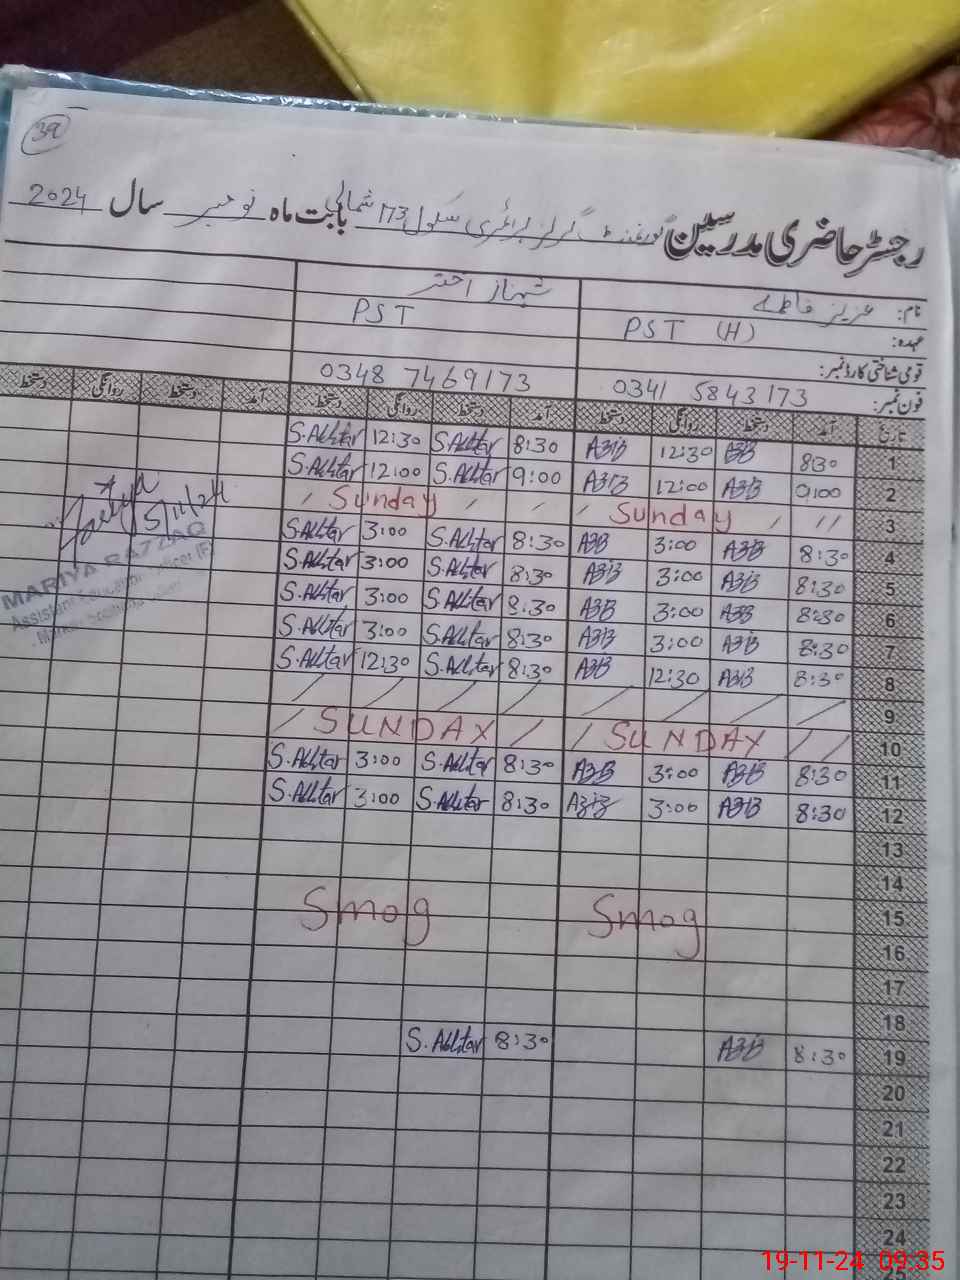 39
رجسٹر حاضری مدرسین گورنمنٹ گرلز پرائمری سکول 173 شمالی بابت ماہ نومبر سال 2024
نام: عزیز فاطمہ شہناز اختر
عہدہ: PST (H) PST
قومی شناختی کارڈ نمبر:
فون نمبر: 0341 5843173 0348 7469173
تاریخ آمد دستخط روانگی دستخط آمد دستخط روانگی دستخط آمد دستخط روانگی دستخط
1 8:30 12:30 8:30 S.Akhtar 12:30 S.Akhtar
2 9:00 12:00 9:00 S.Akhtar 12:00 S.Akhtar
3 Sunday Sunday
4 8:30 3:00 8:30 S.Akhtar 3:00 S.Akhtar
5 8:30 3:00 8:30 S.Akhtar 3:00 S.Akhtar
6 8:30 3:00 8:30 S.Akhtar 3:00 S.Akhtar
7 8:30 3:00 8:30 S.Akhtar 3:00 S.Akhtar
8 8:30 12:30 8:30 S.Akhtar 12:30 S.Akhtar
9
10 SUNDAY SUNDAY
11 8:30 3:00 8:30 S.Akhtar 3:00 S.Akhtar
12 8:30 3:00 8:30 S.Akhtar 3:00 S.Akhtar
13
14
15 Smog Smog
16
17
18
19 8:30 8:30 S.Akhtar
20
21
22
23
24
25
5/11/24
MARIYA RAZZAQ
Assistant Education Officer (F)
19-11-24 09:35